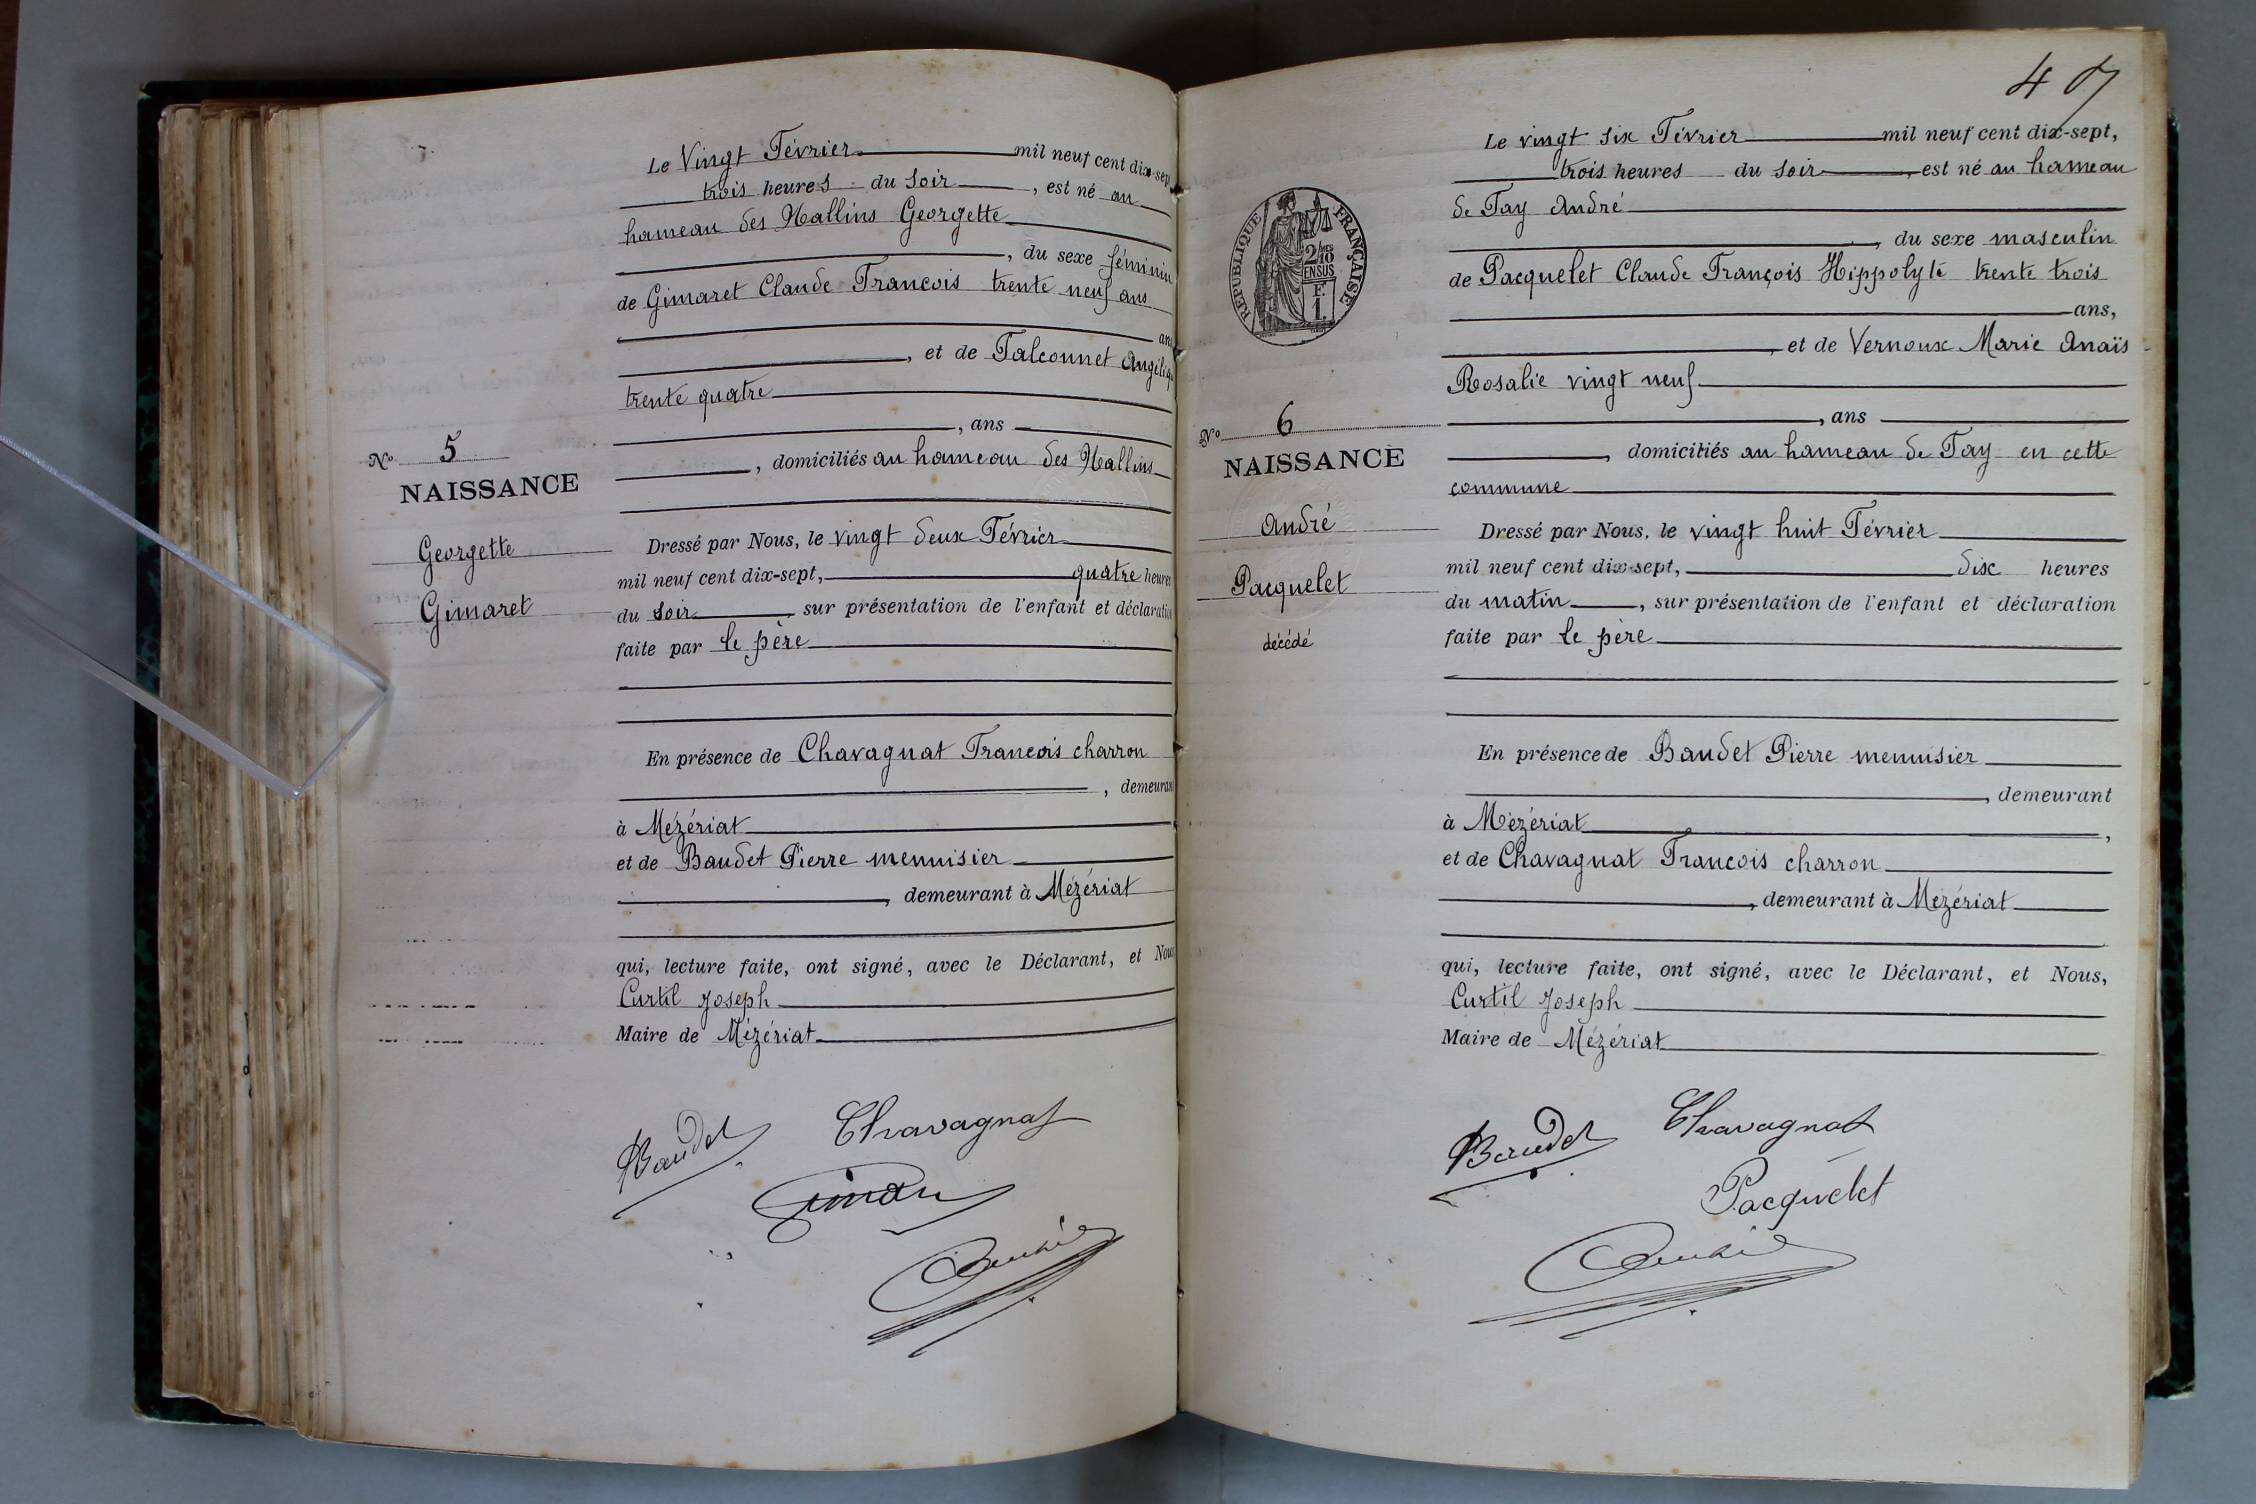 Le Vingt Février mil neuf cent dix-sep
trois heures du soir, est né au
hameau des Mallins Georgette
, du sexe féminin
de Gimaret Claude Francois trente neuf ans
ans
, et de Falconnet Angéliqu
trente quatre
, ans
, domiciliés au hameau des Mallins
No 5
NAISSANCE
Georgette
Gimaret
Dressé par Nous, le vingt deux Février
mil neuf cent dix-sept, quatre heures
du soir, sur présentation de l'enfant et déclaration
faite par le père
En présence de Chavagnat Francois charron
, demeurant
à Mézériat
et de Baudet Pierre menuisier
, demeurant à Mézériat
qui, lecture faite, ont signé, avec le Déclarant, et Nous
Curtil Joseph
Maire de Mézériat
Baudet Chavagnat
Gimaret
47
Le vingt six Février mil neuf cent dix-sept,
trois heures du soir, est né au hameau
de Tay André
, du sexe masculin
de Pacquelet Claude François Hippolyte trente trois
ans,
, et de Vernoux Marie Anaïs
Rosalie vingt neuf
, ans
, domiciliés au hameau de Tay en cette
commune
REPUBLIQUE FRANÇAISE
2/10
EN SUS
F.
1.
No 6
NAISSANCE
André
Pacquelet
décédé
Dressé par Nous, le vingt huit Février
mil neuf cent dix-sept, dix heures
du matin, sur présentation de l'enfant et déclaration
faite par le père
En présence de Baudet Pierre menuisier
, demeurant
à Mézériat,
et de Chavagnat Francois charron
, demeurant à Mézériat
qui, lecture faite, ont signé, avec le Déclarant, et Nous,
Curtil Joseph
Maire de Mézériat
Baudet Chavagnat
Pacquelet